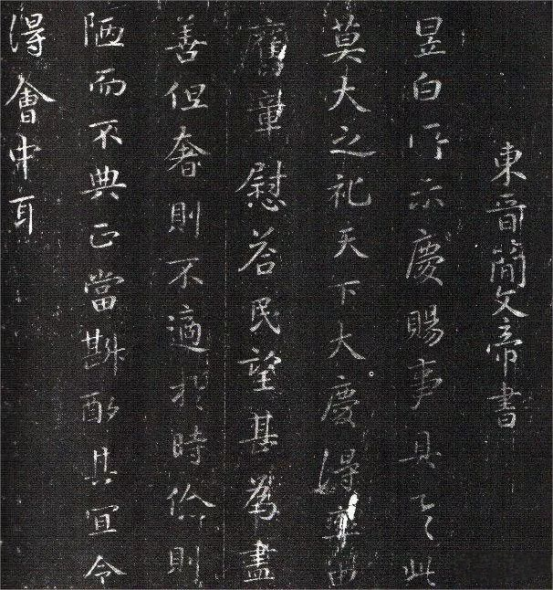 東晉簡文帝書
昱白所示慶賜事具之此
莫大之祀天下大慶得率由
舊章慰荅民望甚爲盡
善但奢則不適扵時儉則
陋而不典正當斟酌其宜令
得會中耳